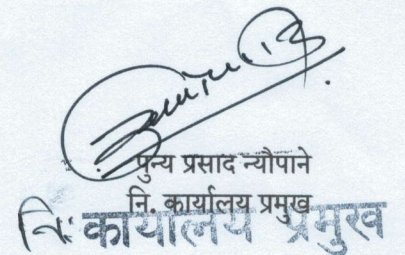 पुन्य प्रसाद न्यौपाने
नि. कार्यालय प्रमुख
नि. कार्यालय प्रमुख